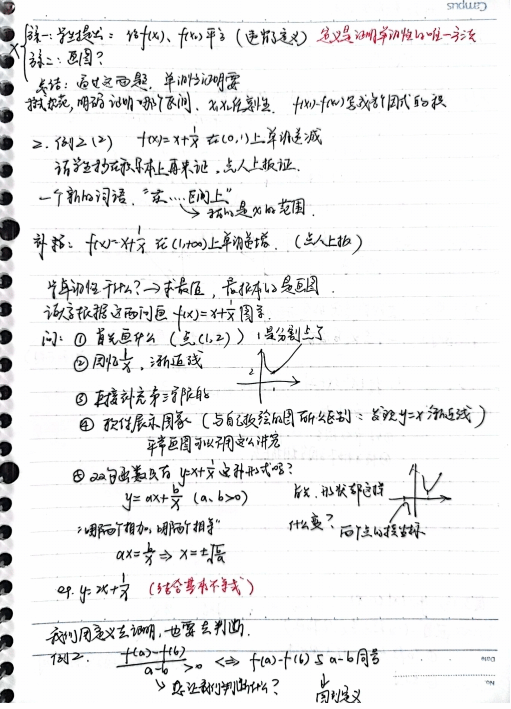 法一: 学生提出: 作f(x₁)、f(x₂)平方 (更符定义) 定义是证明单调性的唯一方法
法二: 画图?
总结: 通过这两题, 单调性证明要
明确证明哪个区间、x₁x₂任意性. f(x₁)-f(x₂)写成若干因式的积
2. 例2 (2) f(x)=x+1/x 在(0,1)上单调递减
请学生在本上再来证. 点人上板证.
一个新的词语. "在……区间上"
→ 指的是x的范围.
补充: f(x)=x+1/x 在(1,+∞)上单调递增. (点人上板)
学单调性干什么? → 求最值, 最根本的是画图.
请你根据这两问画 f(x)=x+1/x 图象.
问: ① 首先画什么 (点(1,2)) 1是分割点了
② 回忆1/x, 渐近线
2
③ 直接补充第三象限的
④ 软件展示图象 (与自己所绘的图有什么区别: 发现y=x渐近线)
平常画图可以不用这么讲究
⑤ 双勾函数只有 y=x+1/x 这种形式吗?
y=ax+b/x (a、b>0) 形状都这样
什么变? 两个点的横坐标
"哪两个相加, 哪两个相等"
ax=b/x ⇒ x=±√(b/a)
eg. y=2x+1/x (结合基本不等式)
我们用定义去证明, 也要去判断.
例2. (f(a)-f(b))/(a-b) >0 ⇔ f(a)-f(b)与a-b同号
→ 要让我们判断什么? ↓
回到定义